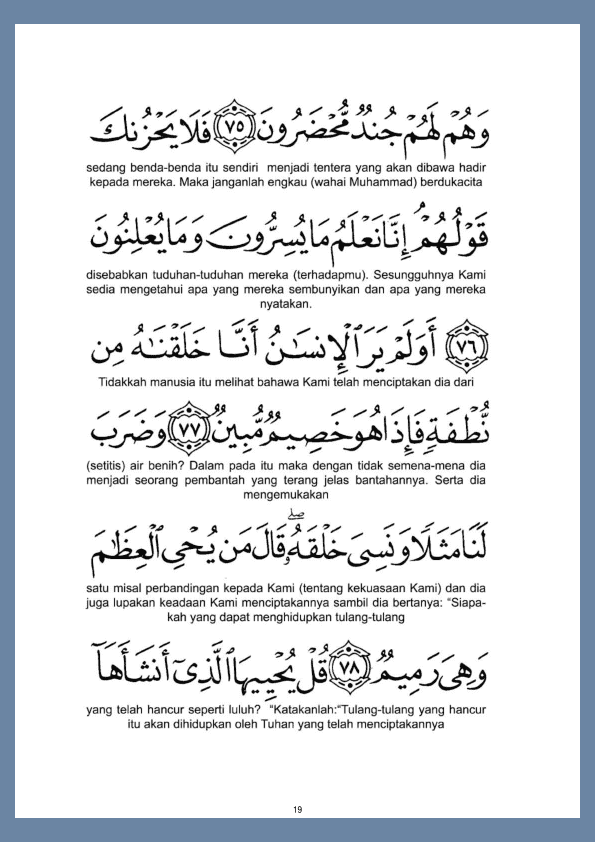 وَهُمْ لَهُمْ جُندٌ مُّحْضَرُونَ ٧٥ فَلَا يَحْزُنكَ
sedang benda-benda itu sendiri menjadi tentera yang akan dibawa hadir
kepada mereka. Maka janganlah engkau (wahai Muhammad) berdukacita
قَوْلُهُمْ ۘ إِنَّا نَعْلَمُ مَا يُسِرُّونَ وَمَا يُعْلِنُونَ
disebabkan tuduhan-tuduhan mereka (terhadapmu). Sesungguhnya Kami
sedia mengetahui apa yang mereka sembunyikan dan apa yang mereka
nyatakan.
٧٦ أَوَلَمْ يَرَ ٱلْإِنسَٰنُ أَنَّا خَلَقْنَٰهُ مِن
Tidakkah manusia itu melihat bahawa Kami telah menciptakan dia dari
نُّطْفَةٍ فَإِذَا هُوَ خَصِيمٌ مُّبِينٌ ٧٧ وَضَرَبَ
(setitis) air benih? Dalam pada itu maka dengan tidak semena-mena dia
menjadi seorang pembantah yang terang jelas bantahannya. Serta dia
mengemukakan
لَنَا مَثَلًا وَنَسِىَ خَلْقَهُۥ ۖ قَالَ مَن يُحْىِ ٱلْعِظَٰمَ
satu misal perbandingan kepada Kami (tentang kekuasaan Kami) dan dia
juga lupakan keadaan Kami menciptakannya sambil dia bertanya: “Siapa-
kah yang dapat menghidupkan tulang-tulang
وَهِىَ رَمِيمٌ ٧٨ قُلْ يُحْيِيهَا ٱلَّذِىٓ أَنشَأَهَآ
yang telah hancur seperti luluh? “Katakanlah:“Tulang-tulang yang hancur
itu akan dihidupkan oleh Tuhan yang telah menciptakannya
19